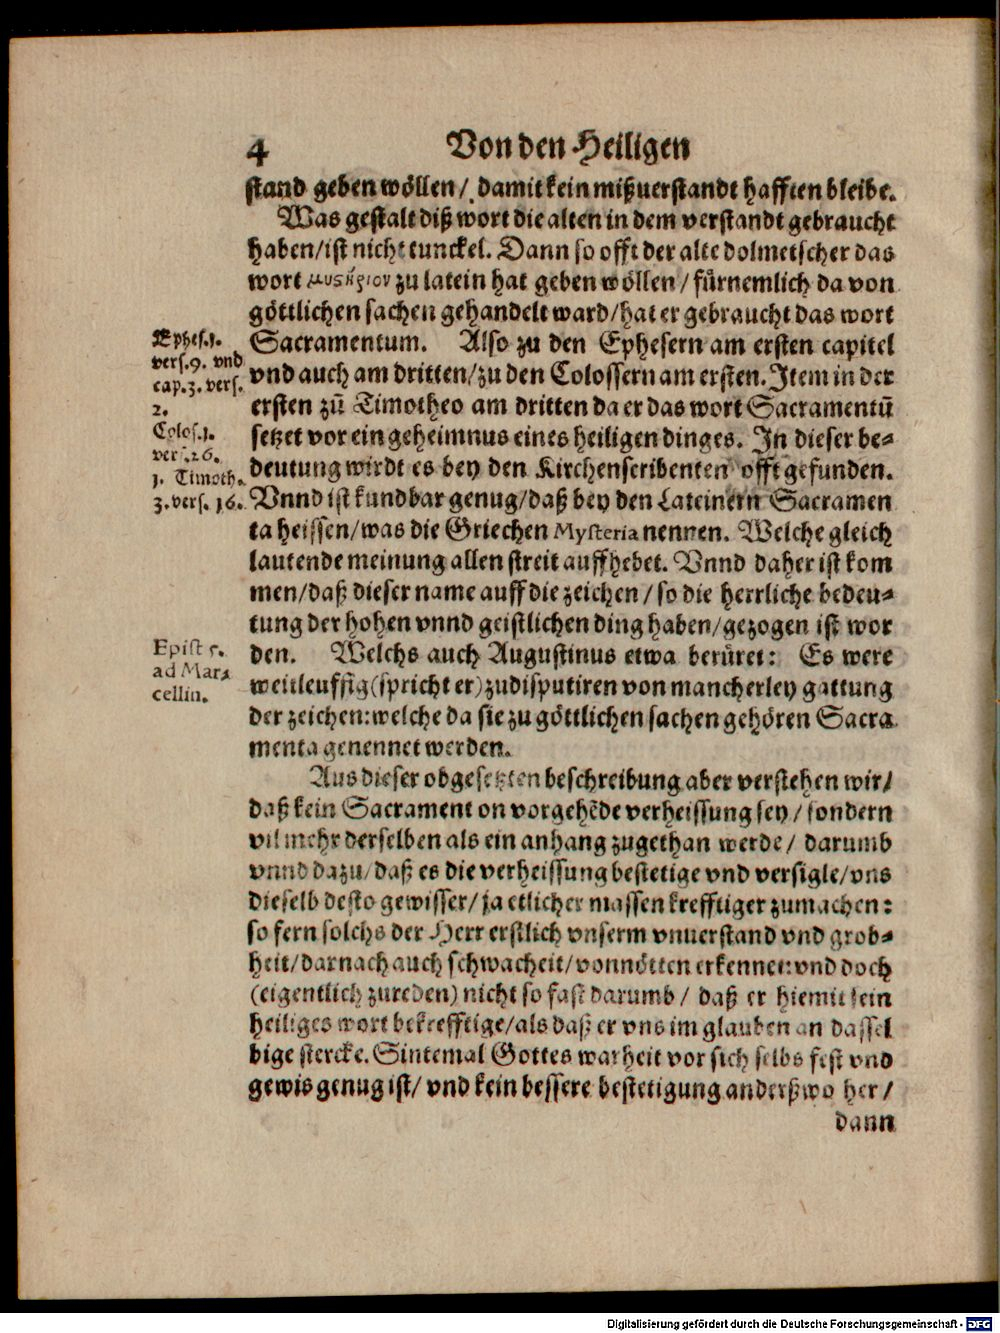 4 Von den Heiligen
stand geben wöllen/ damit kein mißuerstandt hafften bleibe.
Was gestalt diß wort die alten in dem verstandt gebraucht
haben/ist nicht tunckel. Dann so offt der alte dolmetscher das
wort μυϛήριον zu latein hat geben wöllen/ fürnemlich da von
göttlichen sachen gehandelt ward/hat er gebraucht das wort
Sacramentum. Also zu den Ephesern am ersten capitel
vnd auch am dritten/zu den Colossern am ersten. Item in der
ersten zū Timotheo am dritten da er das wort Sacramentū
setzet vor ein geheimnus eines heiligen dinges. In dieser be⸗
deutung wirdt es bey den Kirchenscribenten offt gefunden.
Vnnd ist kundbar genug/daß bey den Lateinern Sacramen
ta heissen/was die Griechen Mysteria nennen. Welche gleich
lautende meinung allen streit auffhebet. Vnnd daher ist kom
men/daß dieser name auff die zeichen/so die herrliche bedeu⸗
tung der hohen vnnd geistlichen ding haben/gezogen ist wor
den. Welchs auch Augustinus etwa berüret: Es were
weitleuffig(spricht er)zu disputiren von mancherley gattung
der zeichen:welche da sie zu göttlichen sachen gehören Sacra
menta genennet werden.
Aus dieser obgesetzten beschreibung aber verstehen wir/
daß kein Sacrament on vorgehēde verheissung sey/ sondern
vil mehr derselben als ein anhang zugethan werde/ darumb
vnnd dazu/daß es die verheissung bestetige vnd versigle/vns
dieselb desto gewisser/ja etlicher massen krefftiger zumachen:
so fern solchs der Herr erstlich vnserm vnuerstand vnd grob⸗
heit/darnach auch schwacheit/vonnötten erkennet:vnd doch
(eigentlich zureden)nicht so fast darumb/ daß er hiemit sein
heiliges wort bekrefftige/als daß er vns im glauben an dassel
bige stercke. Sintemal Gottes warheit vor sich selbs fest vnd
gewis genug ist/ vnd kein bessere bestetigung anderßwo her/
dann
Ephes.1.
vers.9. vnd
cap.3. vers.
2.
Colos.1.
vers.26.
1. Timoth.
3.vers. 16.
Epist 5.
ad Mar⸗
cellin.
Digitalisierung gefördert durch die Deutsche Forschungsgemeinschaft - DFG